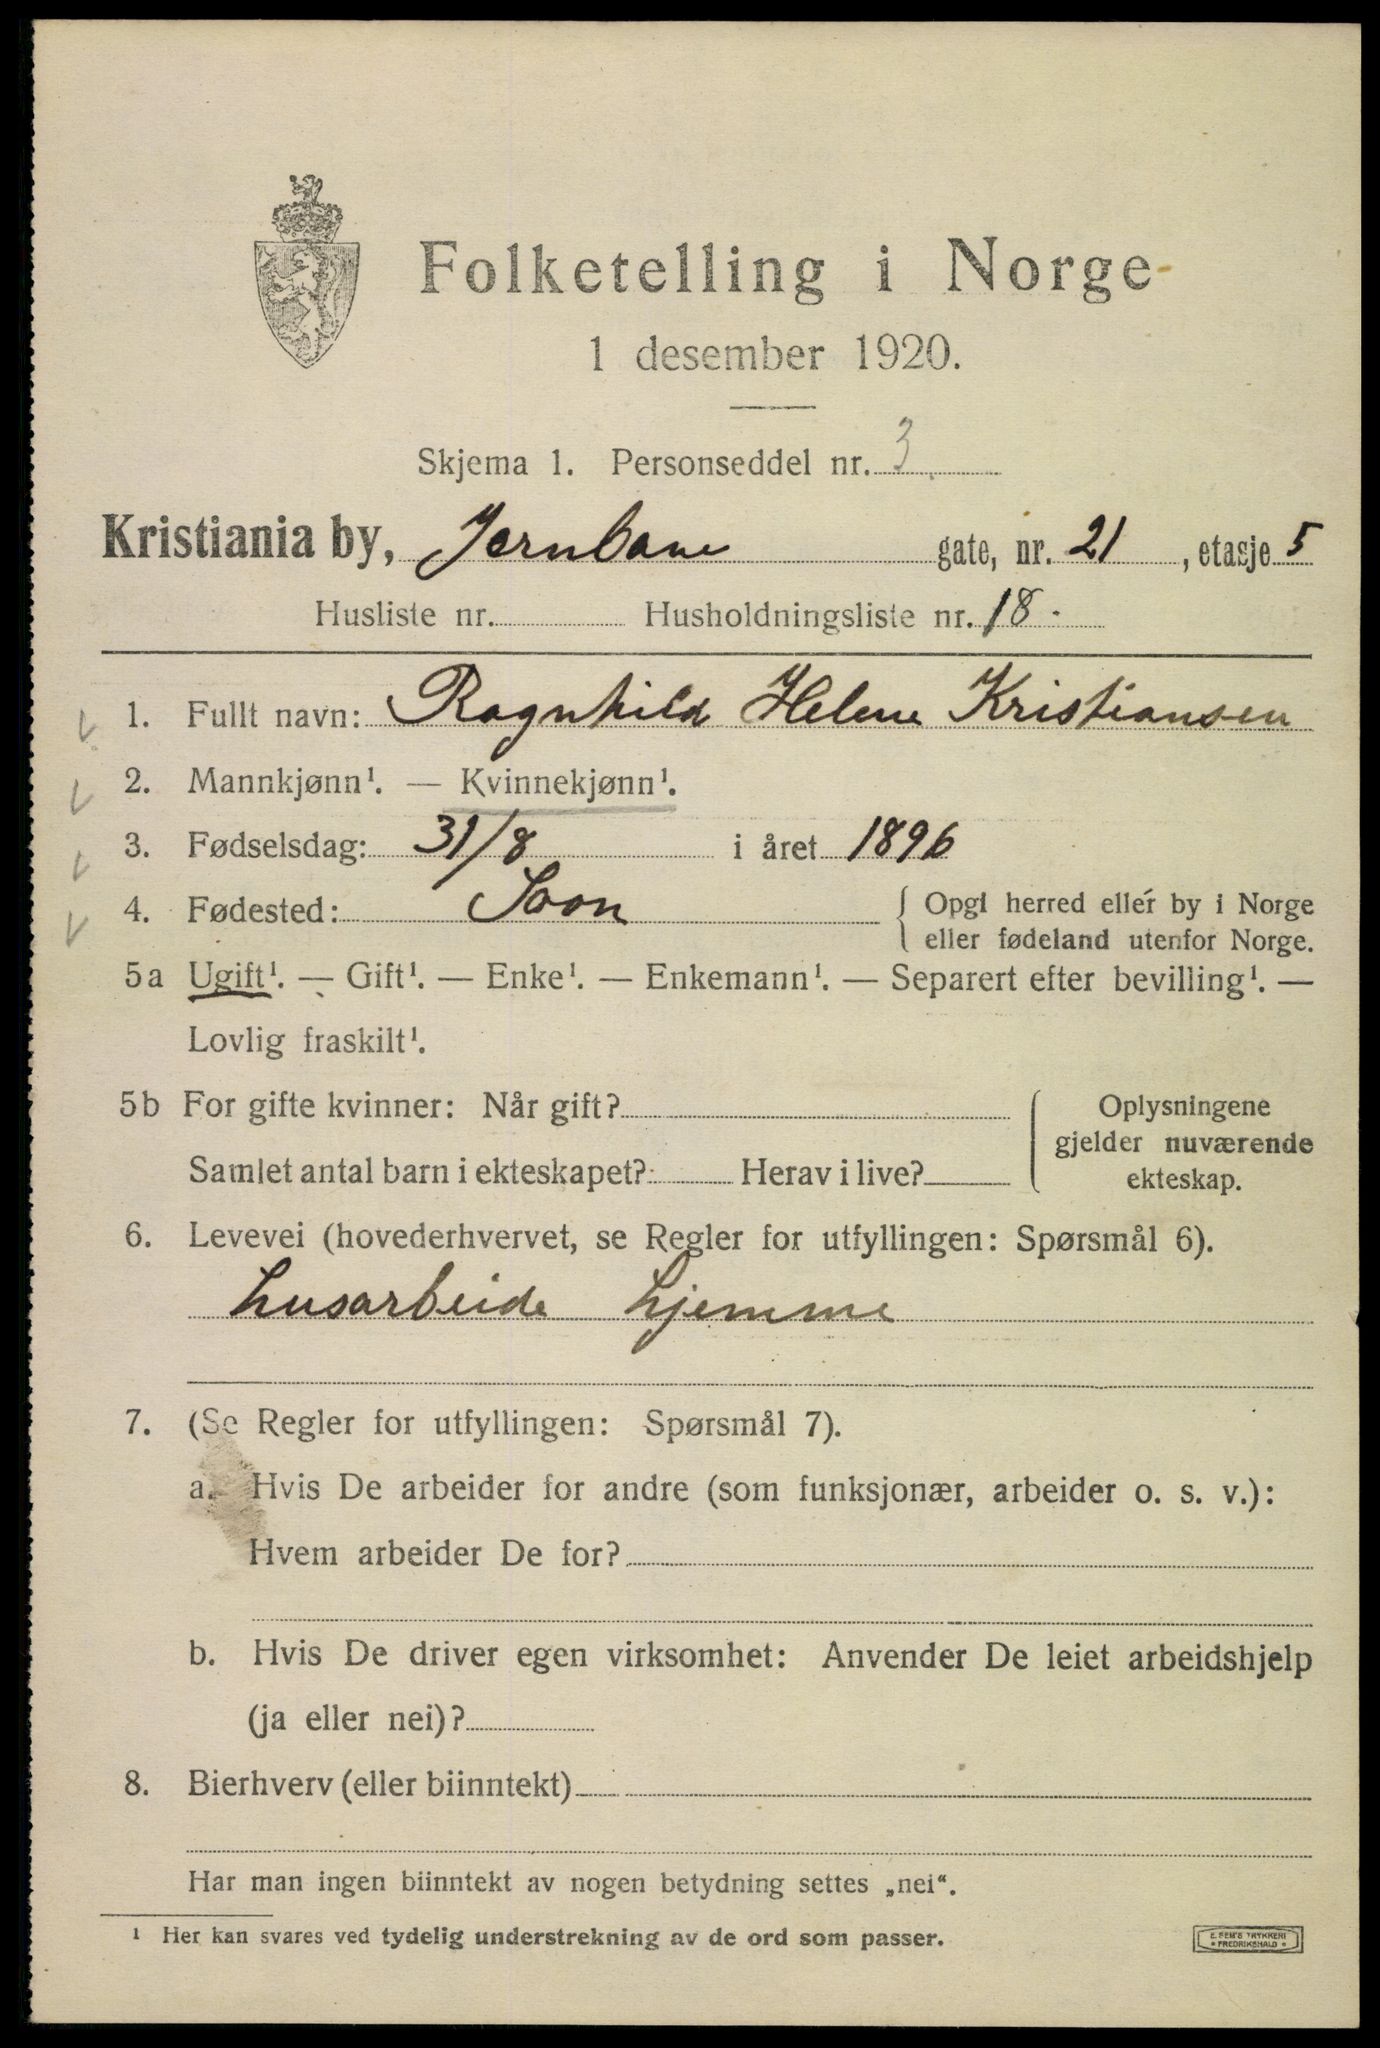 Folketelling i Norge
1 desember 1920.
Skjema 1. Personseddel nr. 3
Kristiania by, Jernbane gate, nr. 21, etasje 5
Husliste nr. Husholdningsliste nr. 18.
1. Fullt navn: Ragnhild Helene Kristiansen
2. Mannkjønn¹. — Kvinnekjønn¹.
3. Fødselsdag: 31/8 i året 1896
4. Fødested: Soon { Opgi herred eller by i Norge
eller fødeland utenfor Norge.
5a Ugift¹. — Gift¹. — Enke¹. — Enkemann¹. — Separert efter bevilling¹. —
Lovlig fraskilt¹.
5b For gifte kvinner: Når gift? { Oplysningene
gjelder nuværende
Samlet antal barn i ekteskapet? Herav i live? ekteskap.
6. Levevei (hovederhvervet, se Regler for utfyllingen: Spørsmål 6).
husarbeide hjemme
7. (Se Regler for utfyllingen: Spørsmål 7).
a. Hvis De arbeider for andre (som funksjonær, arbeider o. s. v.):
Hvem arbeider De for?
b. Hvis De driver egen virksomhet: Anvender De leiet arbeidshjelp
(ja eller nei)?
8. Bierhverv (eller biinntekt)
Har man ingen biinntekt av nogen betydning settes „nei“.
¹ Her kan svares ved tydelig understrekning av de ord som passer.
E. SEM'S TRYKKERI
• FREDRIKSHALD •